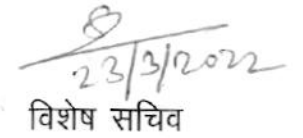 23/3/2022
विशेष सचिव